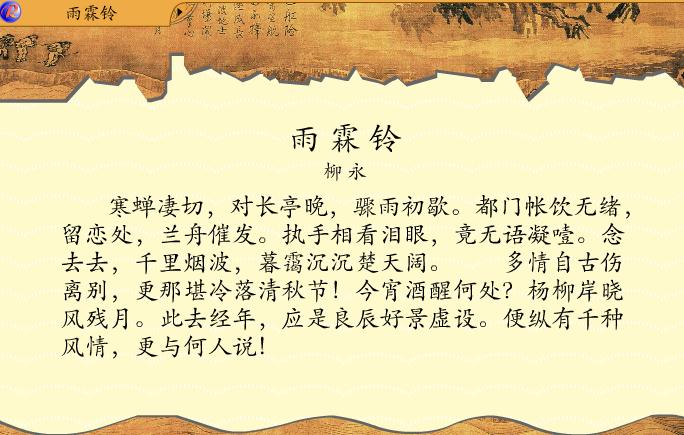 雨霖铃
雨霖铃
柳永
寒蝉凄切，对长亭晚，骤雨初歇。都门帐饮无绪，
留恋处，兰舟催发。执手相看泪眼，竞无语凝噎。念
去去，千里烟波，暮霭沉沉楚天阔。 多情自古伤
离别，更那堪冷落清秋节！今宵酒醒何处？杨柳岸晓
风残月。此去经年，应是良辰好景虚设。便纵有千种
风情，更与何人说！